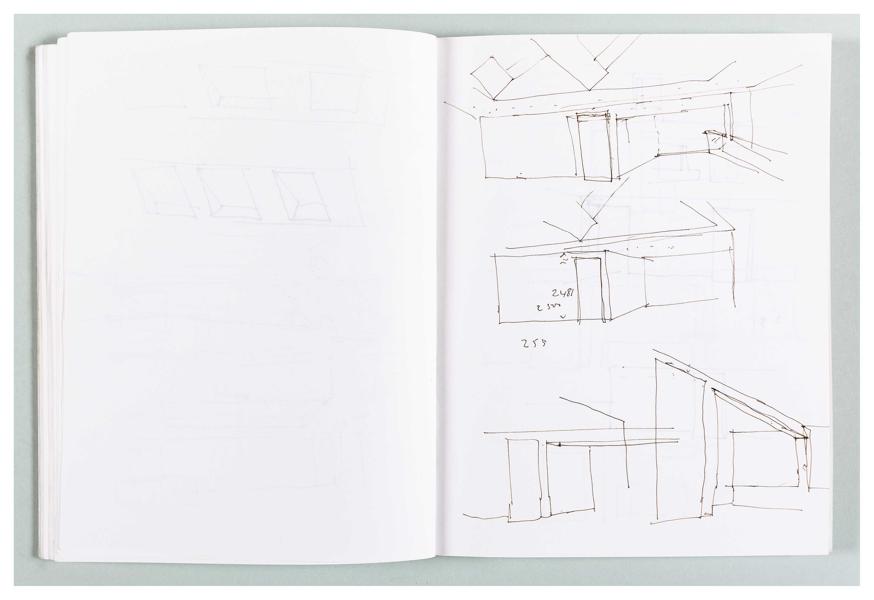 2481
2500
255